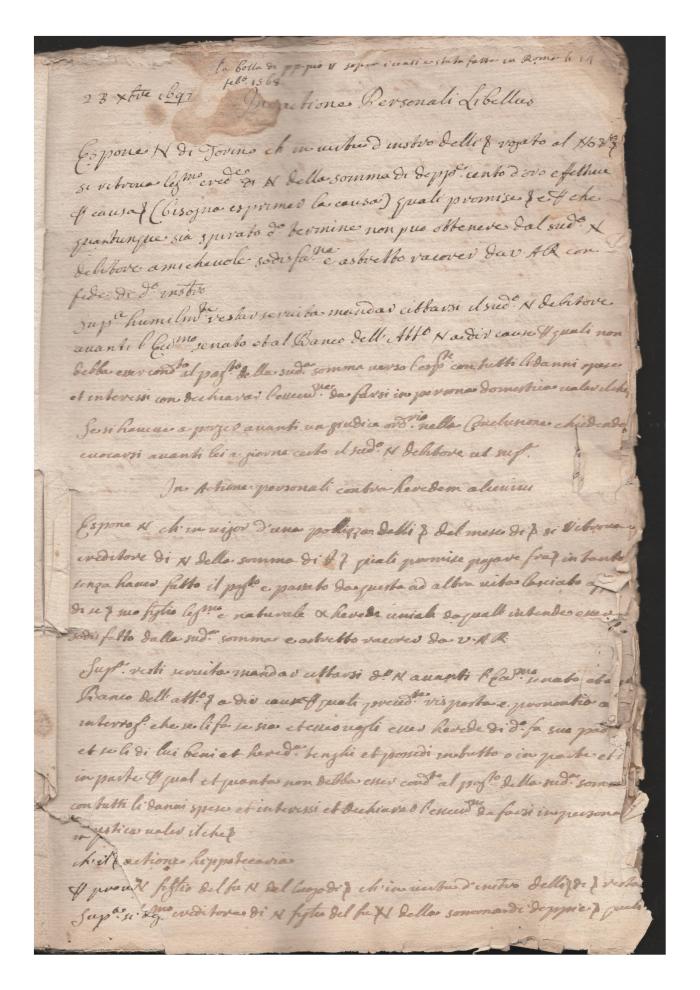 la bolla di pp pio V sopra i censi e stata fatta in Roma li 14
feb.o 1568
23 Xbre 1697
In actione Personali Libellus
Espone N di Torino ch in virtu d instro delli } rogato al
si ritrova leg.mo cred.e di N della somma di depp.e cento d'oro effettive
causa } (bisogna esprimer la causa) quali promise } e che
quantunque sia spirato d.o termine non puo obtenere dal sud.o N
debittore amichevole sodisfa.ne e astretto racorer da V A R con
fede di d.o instro
Sup.a humilm.te resti servita mandar cittarsi il sud.o N debitore
avanti l Ecc.mo senato et al Banco dell Att.o N a dir cause quali non
debba esser cond.to al pag.to della sud.a somma verso l'esp.te con tutti li danni spese
et interessi con dechiarar l'essecu.ne da farsi in persona domestica valer il che
Se si havesse a porger avanti un giudice ord.rio nella Conclusione chiedendo
evocarsi avanti lei a giorno certo il sud.o N debitore ut sup.
In Actione personali contra heredem alicuius
Espone N ch in vigor d'una pollizza delli } del mese di } si ritrova
creditore di N della somma di } quali promise pagare fra } in tanto
senza haver fatto il pag.to e passato da questa ad altra vita lasciato
di se } suo figlio leg.mo e naturale & herede dal quall intende esser
sodisfatto della sud.a somma e astretto racorer da V.A.R
Sup.a resti servita mandar cittarsi d.o N avanti l'Ecc.mo senato et al
Banco dell att.o } a dir cause quali preced.te risposta e prontatia a
interrog.i che se li fa se sia et essor vogli esser herede di d.o fu suo padre
et se li di lui beni et hered.a tenghi et possedi in tutto o in parte et
in parte qual et quanta non debba esser cond.to al pag.to della sud.a somma
con tutti li danni spese et interessi et dechiarar l'essecu.ne da farsi in persona
valer il che }
actione hippotecaria
N figlio del fu N del luogo di } ch in virtu d'instro delli } di } resta
creditore di N figlio del fu N della somma di doppie } quali